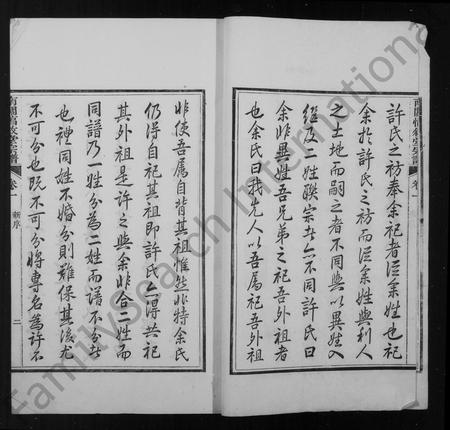 許氏之祊奉余祀者從余姓也祀
余於許氏之祊而從余姓與利人
之土地而嗣之者不同與以異姓入
繼及二姓聯宗者亦不同許氏曰
余非異姓吾兄弟之祀吾外祖者
也余氏曰我先人以吾屬祀吾外祖
非使吾屬自背其祖惟然非特余氏
仍得自祀其祖即許氏亦得共祀
其外祖是許之與余非合二姓而
同譜乃一姓分為二姓而譜不分者
也禮同姓不婚分則難保其後尤
不可分也既不可分將專名為許不
卷一
新序
二
FamilySearch International